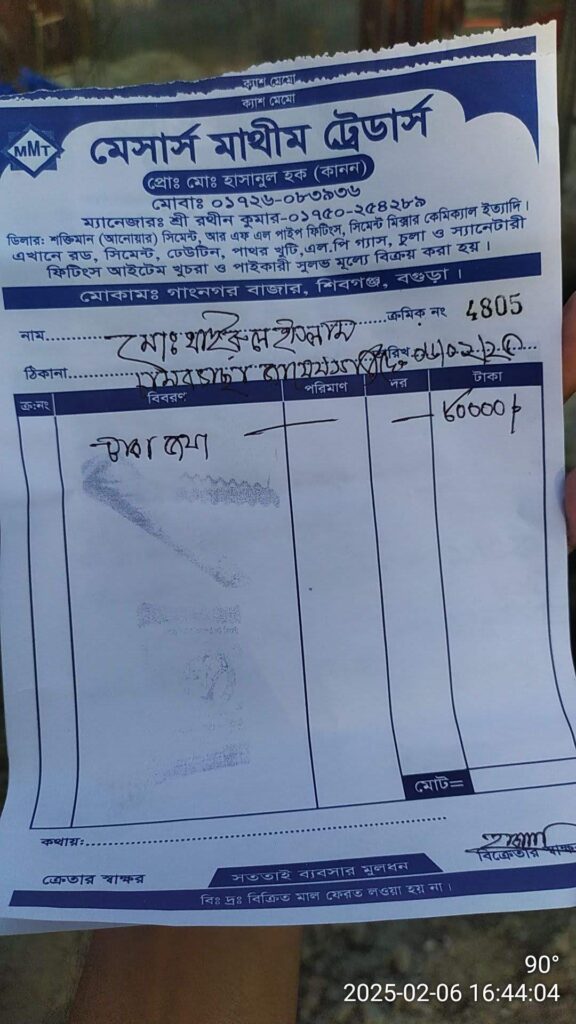 ক্যাশ মেমো
ক্যাশ মেমো
MMT
মেসার্স মাথীম ট্রেডার্স
প্রোঃ মোঃ হাসানুল হক (কানন)
মোবাঃ ০১৭২৬-০৮৩৯৩৬
ম্যানেজারঃ শ্রী রথীন কুমার-০১৭৫০-২৫৪২৮৯
ডিলার: শক্তিমান (আনোয়ার) সিমেন্ট, আর এফ এল পাইপ ফিটিংস, সিমেন্ট মিক্সার কেমিক্যাল ইত্যাদি।
এখানে রড, সিমেন্ট, ঢেউটিন, পাথর খুটি,এল.পি গ্যাস, চুলা ও স্যানেটারী
ফিটিংস আইটেম খুচরা ও পাইকারী সুলভ মূল্যে বিক্রয় করা হয়।
মোকামঃ গাংনগর বাজার, শিবগঞ্জ, বগুড়া ।
নাম মোঃ খাইরুল ইসলাম ক্রমিক নং 4805
ঠিকানা তারিখ ০৬/০২/২৫
ক্র:নং বিবরণ পরিমাণ দর টাকা
টাকা জমা ৮০০০০/
মোট=
কথায়ঃ
ক্রেতার স্বাক্ষর সততাই ব্যবসার মুলধন বিক্রেতার স্বাক্ষর
বিঃ দ্রঃ বিক্রিত মাল ফেরত লওয়া হয় না।
90°
2025-02-06 16:44:04